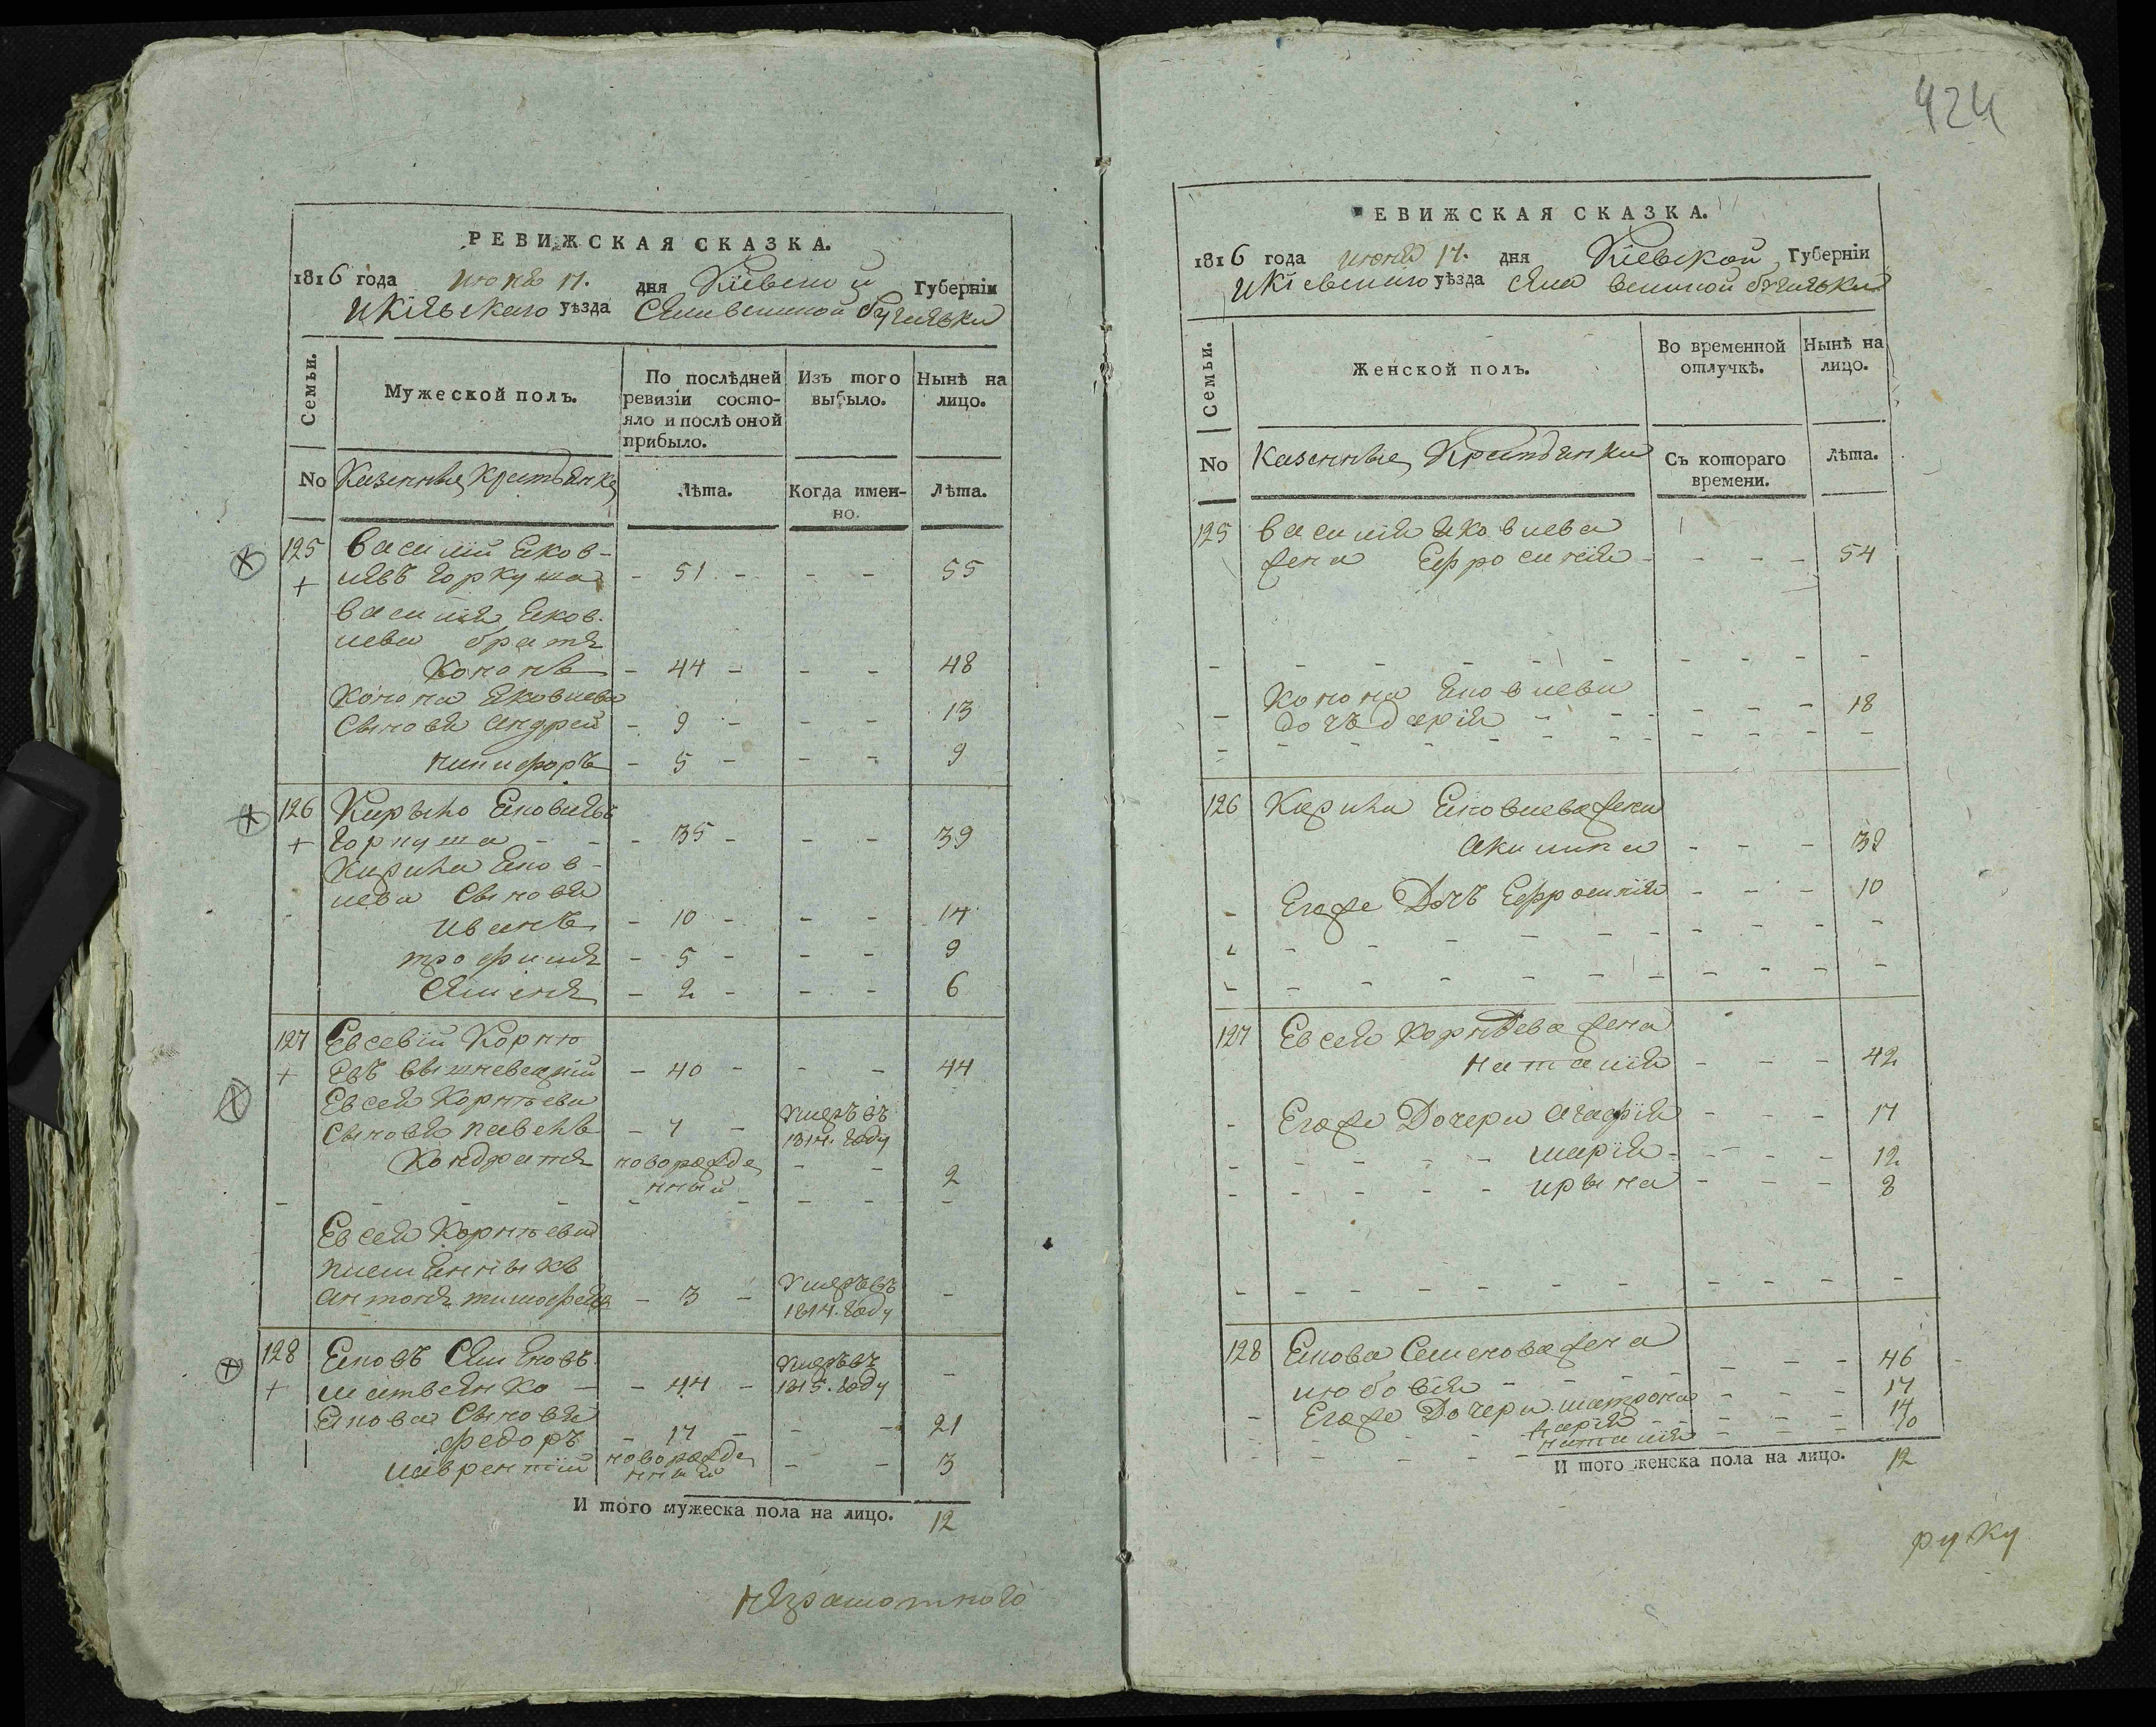 РЕВИЖСКАЯ СКАЗКА.
1816 года июня 17. дня Кіевской Губерніи
И Кіевскаго уѣзда Села великой бугаѣвки
Семьи.
Мужеской полъ.
По послѣдней ревизіи состо-
яло и послѣ оной
прибыло.
Изъ того
выбыло.
Нынѣ на
лицо.
No
Казенные Крестьяне
Лѣта.
Когда имен-
но.
Лѣта.
125 Василій Яков-
+ левъ Горкуша - 51 - - - 55
Василія Яков-
лева братя
Кононъ - 44 - - - 48
Конона Яковлева
Сыновя андрей - 9 - - - 13
никифоръ - 5 - - - 9
126 Кирыло Яковлевъ
+ Горкуша - - - 35 - - - 39
Кирила Яков-
лева Сыновя
иванъ - 10 - - - 14
трофимя - 5 - - - 9
Семеня - 2 - - - 6
127 Евсевій Корнѣ
+ евъ вышневецкій - 40 - - - 44
Евсея Корнѣева
Сыновя павелъ - 7 - умеръ въ
1814. году
Кондратя новорожде
нный - - 2
Евсея Корнѣева
племянныкъ
антоня тимофеевъ - 3 - умеръ въ
1814. году -
128 Яковъ Семеновъ
+ матвеенко - - 44 - умеръ въ
1815. году -
Якова Сыновя
федоръ - 17 - - - 21
лаврентій новорожде
нный - - 3
И того мужеска пола на лицо. 12
неграмотного
424
РЕВИЖСКАЯ СКАЗКА.
1816 года июня 17. дня Кіевской Губерніи
И Кіевскаго уѣзда Села великой бугаѣвки
Семьи.
Женской полъ.
Во временной
отлучкѣ.
Нынѣ на
лицо.
No
Казенные Крестьянки
Съ котораго
времени.
Лѣта.
125 Василія Яковлева
жена Ефросинія - - - - 54
Конона Яковлева
дочъ дарія - - - - - - 18
126 Кирила Яковлева жена
Акилина - - - 38
Егоже Дочъ Ефросинія - - - 10
127 Евсея Корнѣева жена
наталия - - - 42
- Егоже Дочери агафія - - - 17
- - - - - - марія - - - - 12
- - - - - - ирына - - - 8
128 Якова Семенова жена
любовія - - - - - - 46
- Егоже Дочери матрона - - - 17
марія - - - 14
наталия - - - 10
И того женска пола на лицо. 12
руку